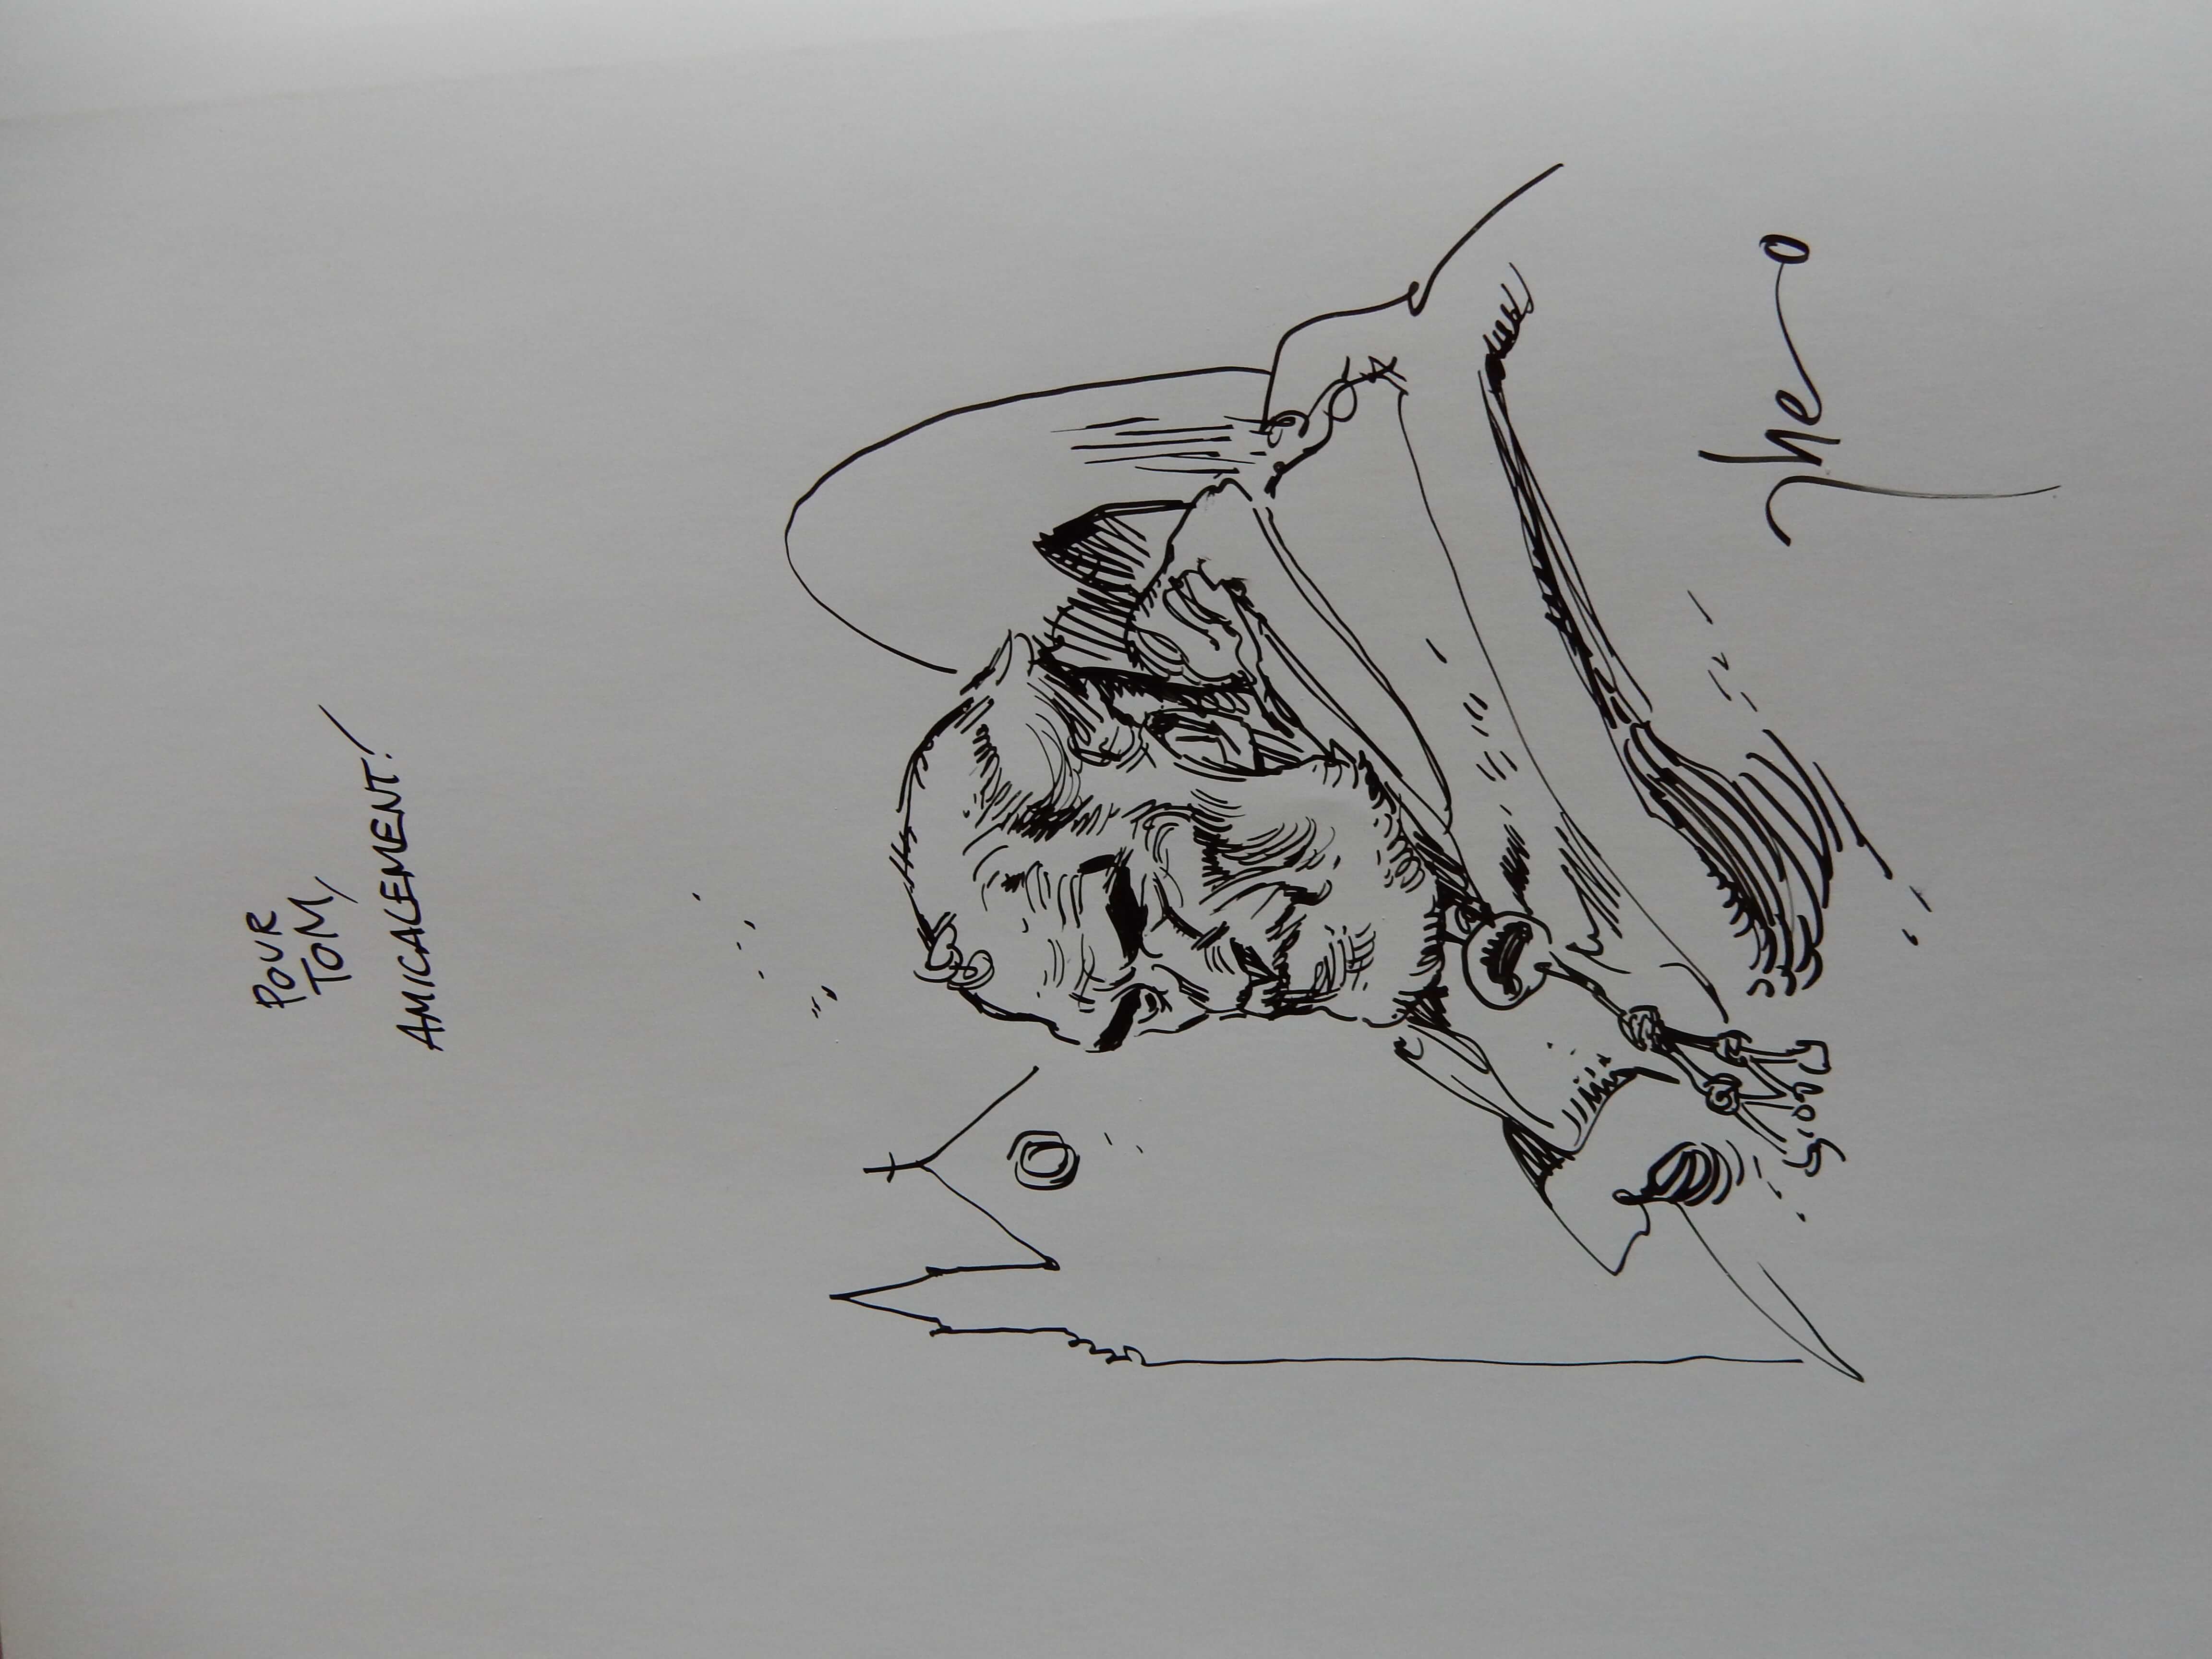 POUR
TOM,
AMICALEMENT!